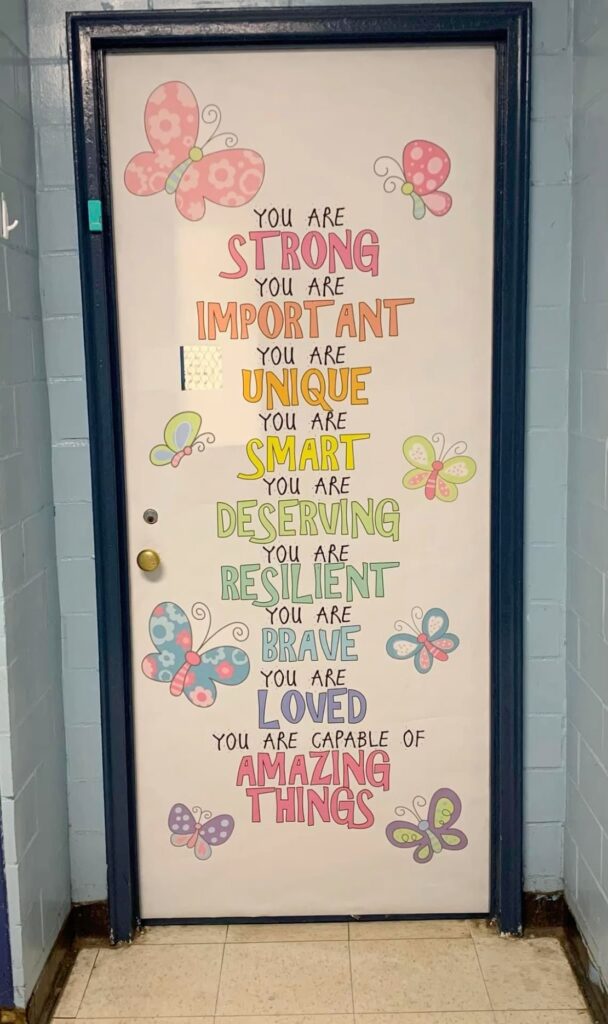 YOU ARE
STRONG
YOU ARE
IMPORTANT
YOU ARE
UNIQUE
YOU ARE
SMART
YOU ARE
DESERVING
YOU ARE
RESILIENT
YOU ARE
BRAVE
YOU ARE
LOVED
YOU ARE CAPABLE OF
AMAZING
THINGS